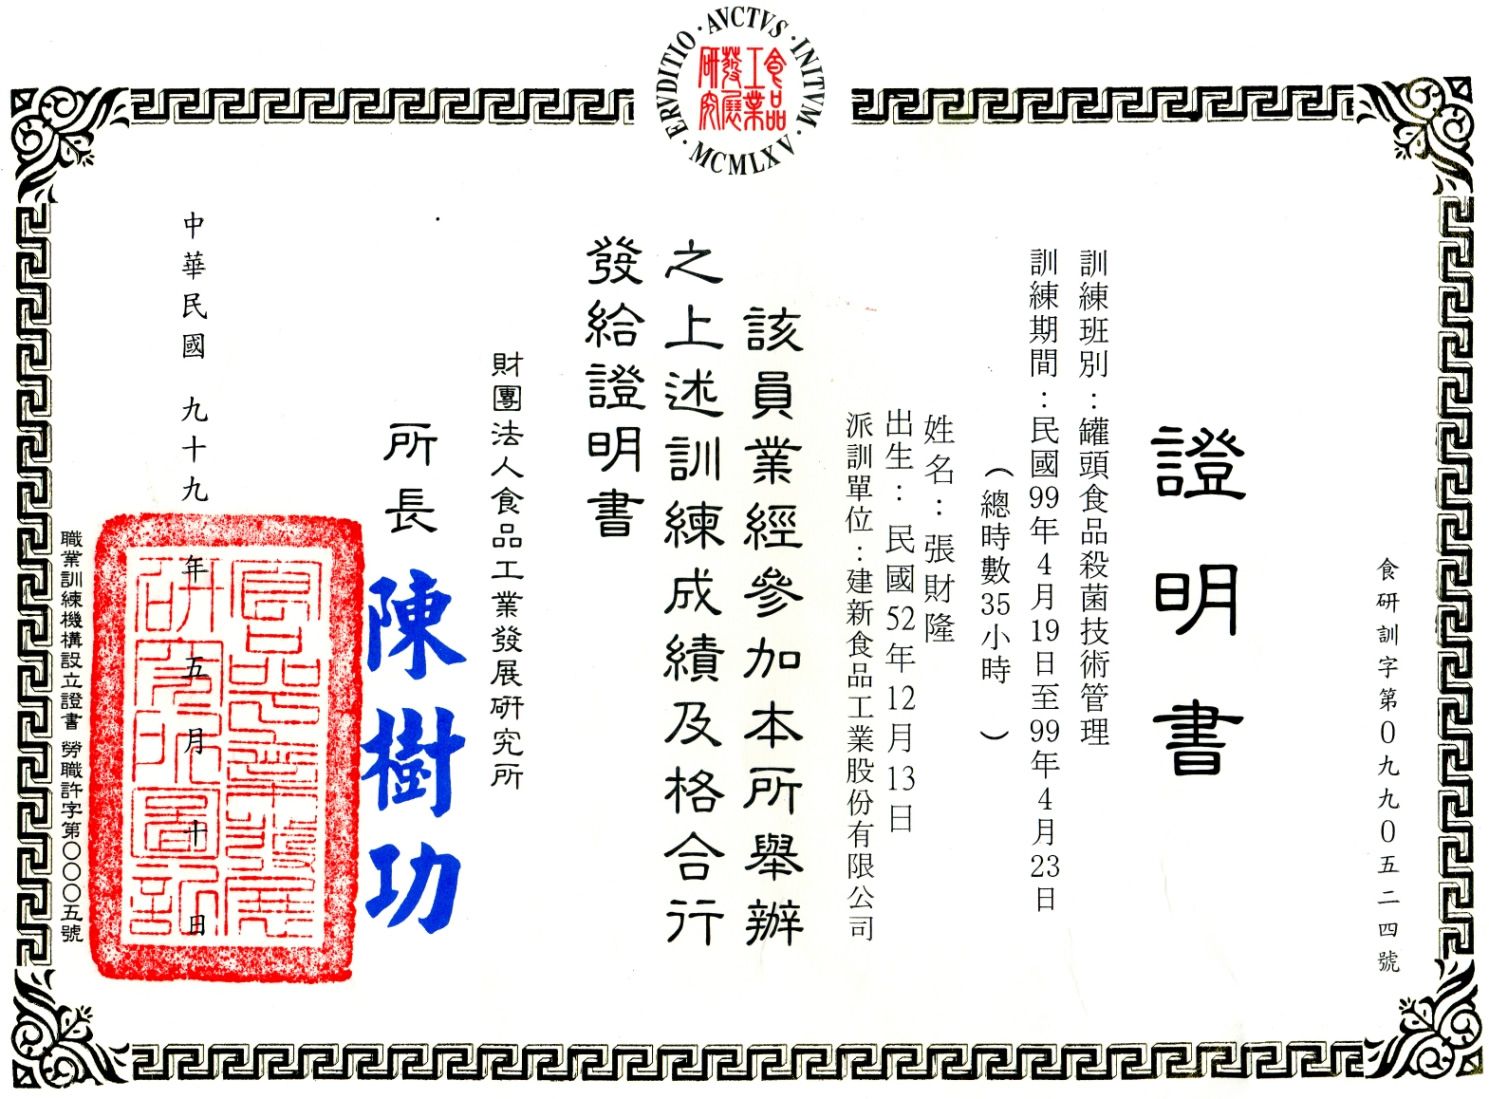 ERVDITIO · AVCTVS · INITVM · MCMLXV ·
食品
工業
發展
研究
食研訓字第0九九0五二四號
證明書
訓練班別：罐頭食品殺菌技術管理
訓練期間：民國99年4月19日至99年4月23日
（總時數35小時）
姓名：張財隆
出生：民國52年12月13日
派訓單位：建新食品工業股份有限公司
該員業經參加本所舉辦
之上述訓練成績及格合行
發給證明書
財團法人食品工業發展研究所
所長 陳樹功
中華民國 九十九年五月十日
食品工業發展
研究所圖記
職業訓練機構設立證書 勞職許字第〇〇〇五號